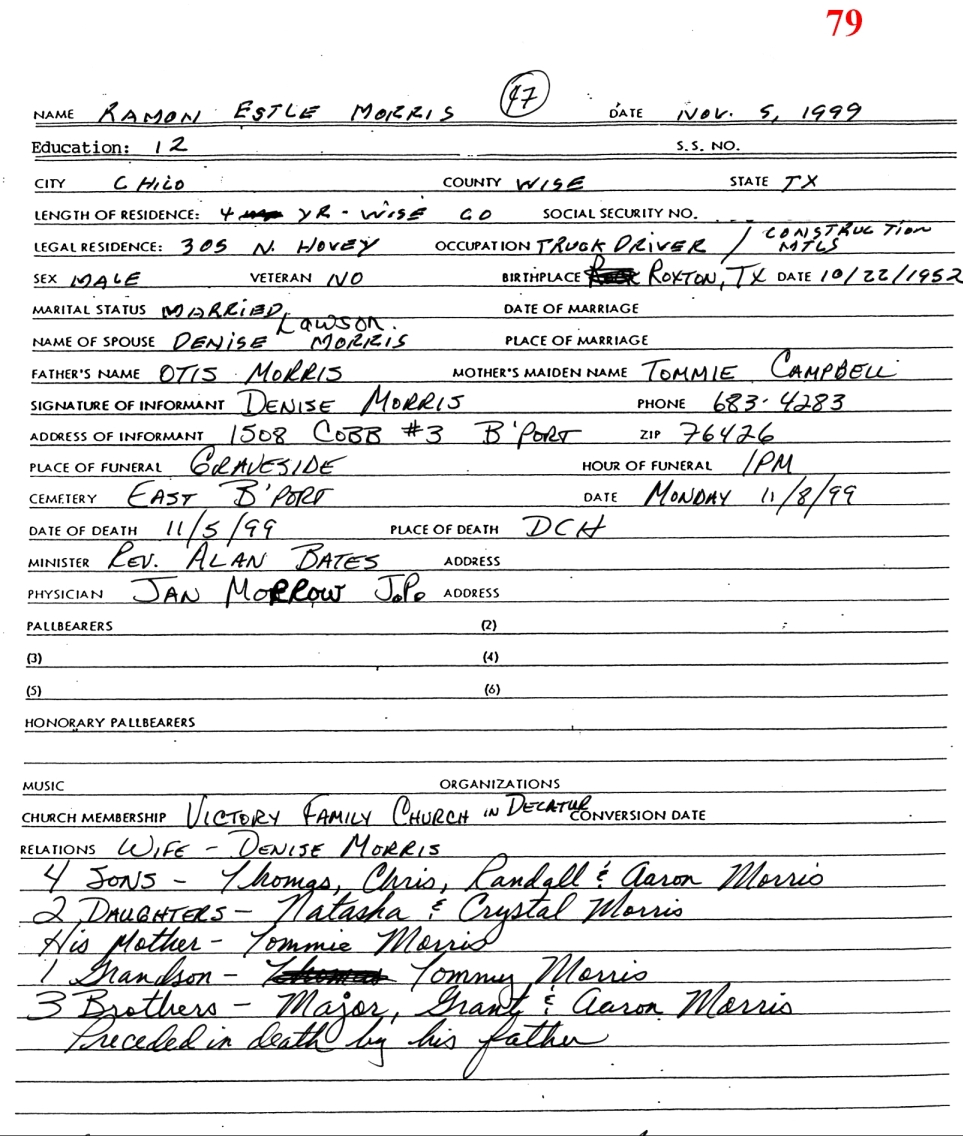 79
47
NAME RAMON ESTLE MORRIS DATE NOV. 5, 1999
Education: 12 S.S. NO.
CITY CHICO COUNTY WISE STATE TX
LENGTH OF RESIDENCE: 4 YR - WISE CO SOCIAL SECURITY NO.
LEGAL RESIDENCE: 305 N. HOVEY OCCUPATION TRUCK DRIVER / CONSTRUCTION MTLS
SEX MALE VETERAN NO BIRTHPLACE ROXTON, TX DATE 10/22/1952
MARITAL STATUS MARRIED DATE OF MARRIAGE
NAME OF SPOUSE DENISE Lawson MORRIS PLACE OF MARRIAGE
FATHER'S NAME OTIS MORRIS MOTHER'S MAIDEN NAME TOMMIE CAMPBELL
SIGNATURE OF INFORMANT DENISE MORRIS PHONE 683-4283
ADDRESS OF INFORMANT 1508 COBB #3 B'PORT ZIP 76426
PLACE OF FUNERAL GRAVESIDE HOUR OF FUNERAL 1PM
CEMETERY EAST B'PORT DATE MONDAY 11/8/99
DATE OF DEATH 11/5/99 PLACE OF DEATH DCH
MINISTER REV. ALAN BATES ADDRESS
PHYSICIAN JAN MORROW J.P. ADDRESS
PALLBEARERS (2)
(3) (4)
(5) (6)
HONORARY PALLBEARERS
MUSIC ORGANIZATIONS
CHURCH MEMBERSHIP VICTORY FAMILY CHURCH IN DECATUR CONVERSION DATE
RELATIONS WIFE - DENISE MORRIS
4 SONS - Thomas, Chris, Randall & Aaron Morris
2 DAUGHTERS - Natasha & Crystal Morris
His Mother - Tommie Morris
1 Grandson - Tommy Morris
3 Brothers - Major, Grant & Aaron Morris
Preceded in death by his father